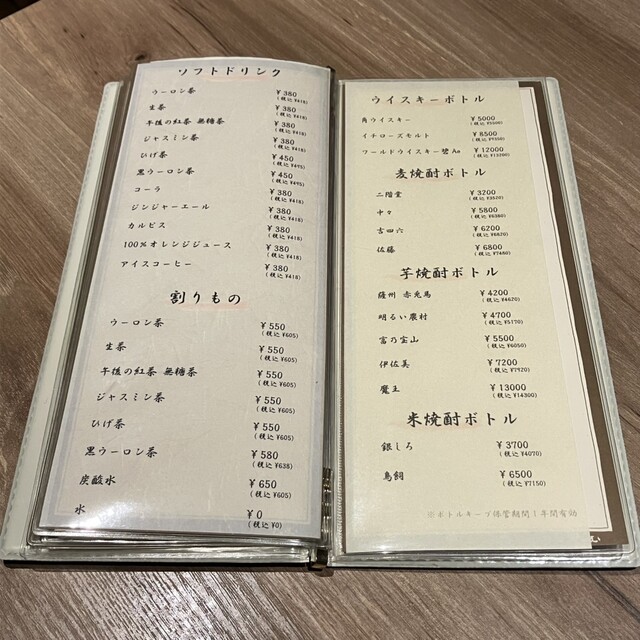 ソフトドリンク
ウーロン茶 ¥380
(税込¥418)
生茶 ¥380
(税込¥418)
午後の紅茶 無糖茶 ¥380
(税込¥418)
ジャスミン茶 ¥380
(税込¥418)
ひげ茶 ¥450
(税込¥495)
黒ウーロン茶 ¥450
(税込¥495)
コーラ ¥380
(税込¥418)
ジンジャーエール ¥380
(税込¥418)
カルピス ¥380
(税込¥418)
100%オレンジジュース ¥380
(税込¥418)
アイスコーヒー ¥380
(税込¥418)
割りもの
ウーロン茶 ¥550
(税込¥605)
生茶 ¥550
(税込¥605)
午後の紅茶 無糖茶 ¥550
(税込¥605)
ジャスミン茶 ¥550
(税込¥605)
ひげ茶 ¥550
(税込¥605)
黒ウーロン茶 ¥580
(税込¥638)
炭酸水 ¥650
(税込¥605)
水 ¥0
(税込¥0)
ウイスキーボトル
角ウイスキー ¥5000
(税込¥5500)
イチローズモルト ¥8500
(税込¥9350)
ワールドウイスキー碧Ao ¥12000
(税込¥13200)
麦焼酎ボトル
二階堂 ¥3200
(税込¥3520)
中々 ¥5800
(税込¥6380)
吉四六 ¥6200
(税込¥6820)
佐藤 ¥6800
(税込¥7480)
芋焼酎ボトル
薩州 赤兎馬 ¥4200
(税込¥4620)
明るい農村 ¥4700
(税込¥5170)
富乃宝山 ¥5500
(税込¥6050)
伊佐美 ¥7200
(税込¥7920)
魔王 ¥13000
(税込¥14300)
米焼酎ボトル
銀しろ ¥3700
(税込¥4070)
鳥飼 ¥6500
(税込¥7150)
※ボトルキープ保管期間1年間有効